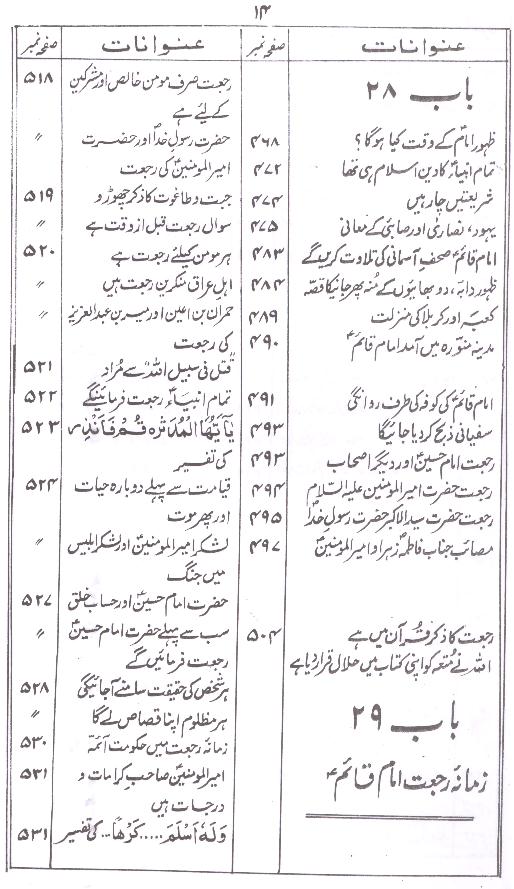 ۱۴
عنوانات صفحہ نمبر
باب ۲۸
ظہور امامؑ کے وقت کیا ہوگا؟ ۴۶۸
تمام انبیاءؑ کا دین اسلام ہی تھا ۴۷۲
شریعتیں چار ہیں ۴۷۴
یہود، نصاریٰ اور صابئی کے معانی ۴۷۵
امام قائمؑ صحفِ آسمانی کی تلاوت کریں گے ۴۸۳
ظہور دابہ، دو بھائیوں کے منہ پھر جانیکا قصہ ۴۸۴
کعبہ اور کربلا کی منزلت ۴۸۹
مدینہ منورہ میں آمد امام قائمؑ ۴۹۰
امام قائمؑ کی کوفہ کی طرف روانگی ۴۹۱
سفیانی ذبح کر دیا جائیگا ۴۹۳
رجعت امام حسینؑ اور دیگر اصحاب ۴۹۳
رجعت حضرت امیر المومنین علیہ السلام ۴۹۴
رجعت حضرت سید الاکبر حضرت رسول خداؐ ۴۹۵
مصائب جناب فاطمہؑ زہرا و امیر المومنینؑ ۴۹۷
رجعت کا ذکر قرآن میں ہے ۵۰۴
اللہ نے متعہ کو اپنی کتاب میں حلال قرار دیا ہے
باب ۲۹
زمانۂ رجعت امام قائمؑ
عنوانات صفحہ نمبر
رجعت صرف مومن خالص اور مشرکین ۵۱۸
کے لیے ہے
حضرت رسول خداؐ اور حضرت ״
امیر المومنینؑ کی رجعت
جبت و طاغوت کا ذکر چھوڑو ۵۱۹
سوال رجعت قبل از وقت ہے ״
ہر مومن کیلئے رجعت ہے ۵۲۰
اہل عراق منکرین رجعت ہیں ״
حمران بن اعین اور میسر بن عبد العزیز ״
کی رجعت
"قتل فی سبیل اللہ" سے مراد ۵۲۱
تمام انبیاءؑ رجعت فرمائینگے ۵۲۲
يٰٓاَيُّهَا الْمُدَّثِّرُ قُمْ فَاَنْذِرْ ۵۲۳
کی تفسیر
قیامت سے پہلے دوبارہ حیات ۵۲۴
اور پھر موت
لشکر امیر المومنینؑ اور لشکر ابلیس ״
میں جنگ
حضرت امام حسینؑ اور حساب خلق ۵۲۷
سب سے پہلے حضرت امام حسینؑ ״
رجعت فرمائیں گے
ہر شخص کی حقیقت سامنے آجائیگی ۵۲۸
ہر مظلوم اپنا قصاص لے گا ״
زمانۂ رجعت میں حکومت آئمہؑ ۵۳۰
امیر المومنینؑ صاحب کرامات و ۵۳۱
درجات ہیں
وَلَهٗ اَسْلَمَ ..... كَرْهًا ... کی تفسیر ۵۳۱